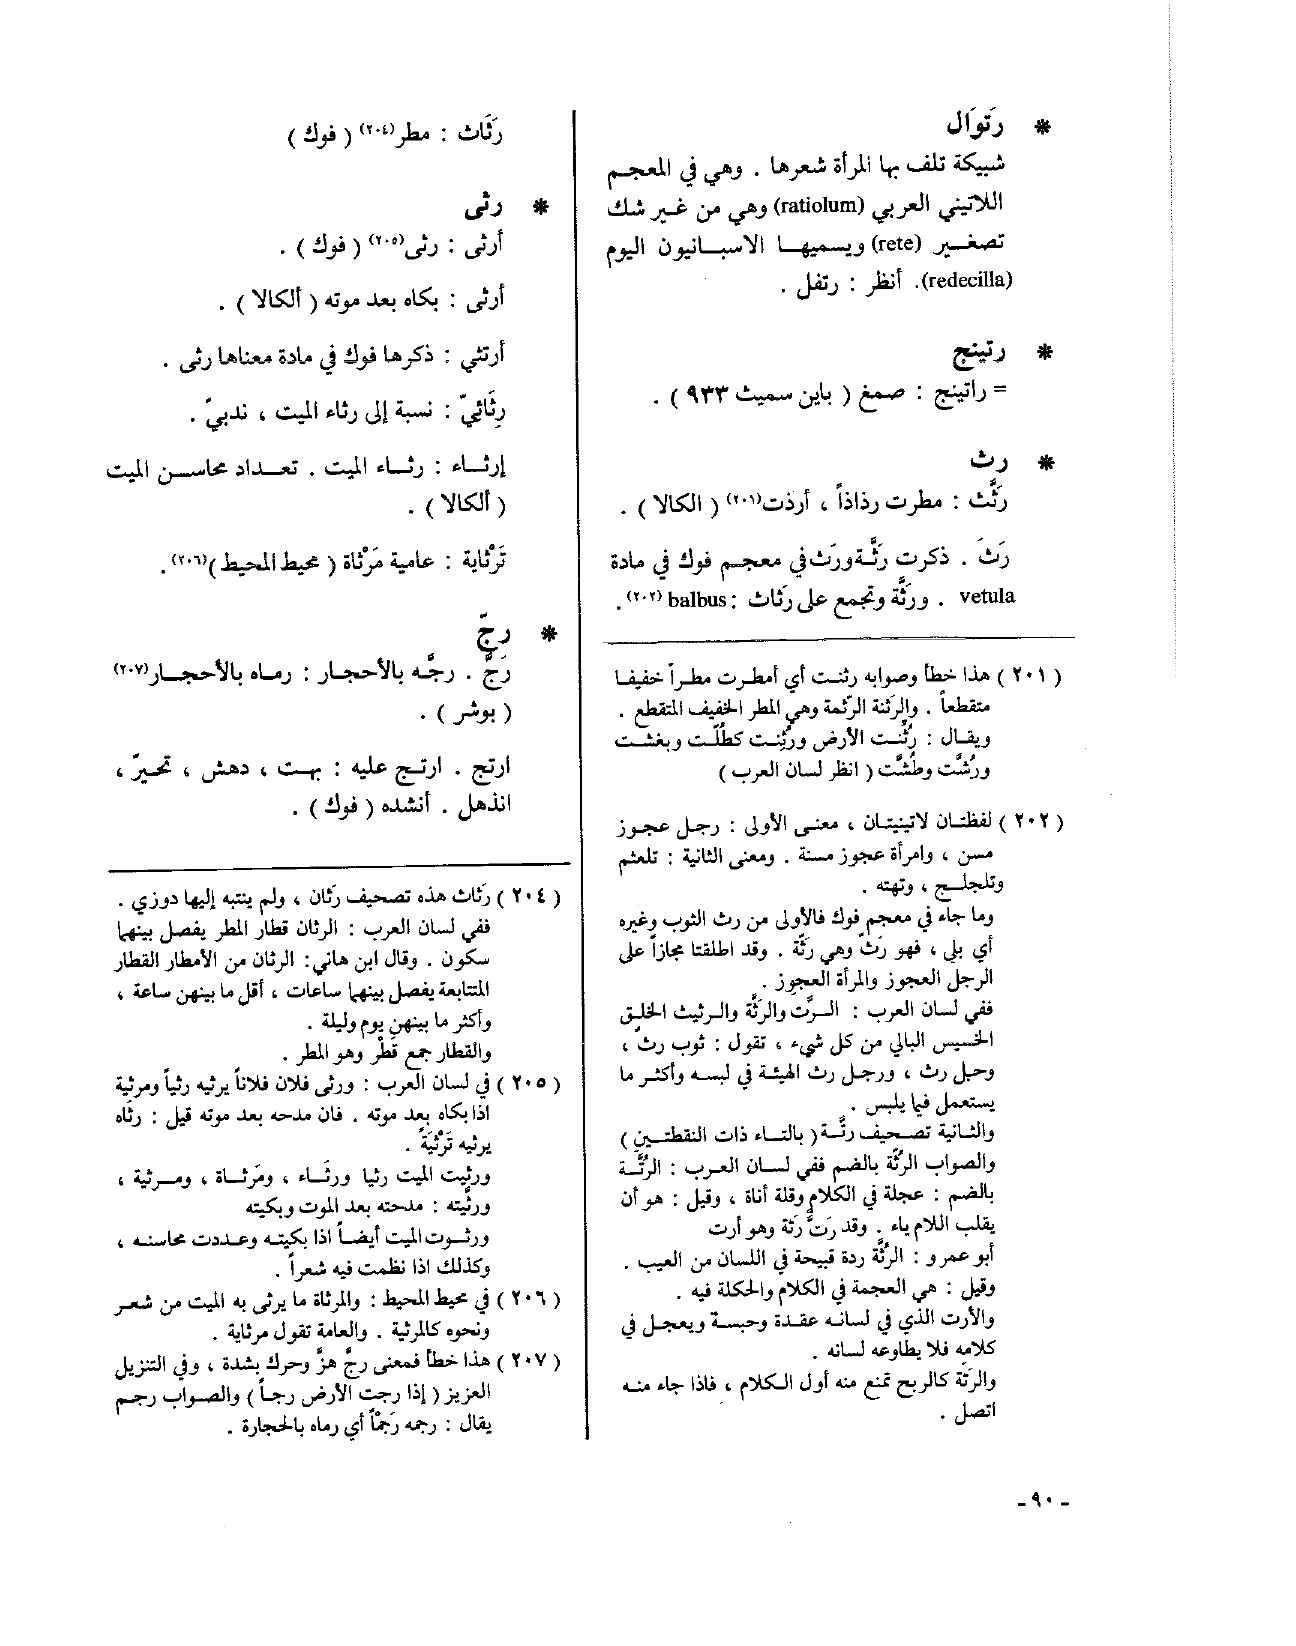 * رَتوَال
شبيكة تلف بها المرأة شعرها . وهي في المعجم
اللاتيني العربي (ratiolum) وهي من غير شك
تصغير (rete) ويسميها الاسبانيون اليوم
(redecilla). أنظر : رتفل .
* رتينج
= راتينج : صمغ ( باين سميث ٩٣٣ ) .
* رث
رَثَّث : مطرت رذاذاً ، أرذت(٢٠١) ( الكالا ) .
رَثَ . ذكرت رَثَّة ورَث في معجم فوك في مادة
vetula . ورَثَّة وتجمع على رَثاث : balbus (٢٠٢).
( ٢٠١ ) هذا خطأ وصوابه رثنت أي أمطرت مطراً خفيفا
متقطعاً . والرَثنة الرَثمة وهي المطر الخفيف المتقطع .
ويقال : رُثَّنت الأرض ورُثِنت كطُلَّت وبغشت
ورُشَّت وطُشَّت ( انظر لسان العرب )
( ٢٠٢ ) لفظتان لاتينيتان ، معنى الأولى : رجل عجوز
مسن ، وامرأة عجوز مسنة . ومعنى الثانية : تلعثم
وتلجلج ، وتهته .
وما جاء في معجم فوك فالأولى من رث الثوب وغيره
أي بلي ، فهو رثّ وهي رثَّة . وقد اطلقتا مجازاً على
الرجل العجوز والمرأة العجوز .
ففي لسان العرب : الرَّث والرَثَّة والرثيث الخلق
الخسيس البالي من كل شيء ، تقول : ثوب رثّ ،
وحبل رث ، ورجل رث الهيئة في لبسه وأكثر ما
يستعمل فيا يلبس .
والثانية تصحيف رتَّة ( بالتاء ذات النقطتين )
والصواب الرُتَّة بالضم ففي لسان العرب : الرُتَّة
بالضم : عجلة في الكلام وقلة أناة ، وقيل : هو أن
يقلب اللام ياء . وقد رَتَّ رَتة وهو أرت
أبو عمرو : الرُتَّة ردة قبيحة في اللسان من العيب .
وقيل : هي العجمة في الكلام والحكلة فيه .
والأرت الذي في لسانه عقدة وحبسة ويعجل في
كلامه فلا يطاوعه لسانه .
والرَتة كالريح تمنع منه أول الكلام ، فاذا جاء منه
اتصل .
رَثَاث : مطر(٢٠٤) ( فوك )
* رثى
أرثى : رثى(٢٠٥) ( فوك ) .
أرثى : بكاه بعد موته ( ألكالا ) .
أرتثي : ذكرها فوك في مادة معناها رثى .
رِثَائيّ : نسبة إلى رثاء الميت ، ندبيّ .
إرثاء : رثاء الميت . تعداد محاسن الميت
( ألكالا ) .
تَرْثاية : عامية مَرْثاة ( محيط المحيط )(٢٠٦).
* رجّ
رَجَّ . رجَّه بالأحجار : رماه بالأحجار(٢٠٧)
( بوشر ) .
ارتج . ارتج عليه : بهت ، دهش ، تحيرّ ،
انذهل . أنشده ( فوك ) .
( ٢٠٤ ) رَثاث هذه تصحيف رثَان ، ولم ينتبه إليها دوزي .
ففي لسان العرب : الرثان قطار المطر يفصل بينهما
سكون . وقال ابن هاني: الرثان من الأمطار القطار
المتتابعة يفصل بينهما ساعات ، أقل ما بينهن ساعة ،
وأكثر ما بينهن يوم وليلة .
والقطار جمع قَطْر وهو المطر .
( ٢٠٥ ) في لسان العرب : ورثى فلان فلاناً يرثيه رثياً ومرثية
اذا بكاه بعد موته . فان مدحه بعد موته قيل : رثَاه
يرثيه تَرْثيَةً .
ورثيت الميت رثيا ورثاء ، ومَرثاة ، ومرثية ،
ورثَّيته : مدحته بعد الموت وبكيته
ورثوت الميت أيضاً اذا بكيته وعددت محاسنه ،
وكذلك اذا نظمت فيه شعراً .
( ٢٠٦ ) في محيط المحيط : والمرثاة ما يرثى به الميت من شعر
ونحوه كالمرثية . والعامة تقول مرثاية .
( ٢٠٧ ) هذا خطأ فمعنى رجَّ هزَّ وحرك بشدة ، وفي التنزيل
العزيز ( إذا رجت الأرض رجاً ) والصواب رجم
يقال : رجمه رَجْماً أي رماه بالحجارة .
- ٩٠ -